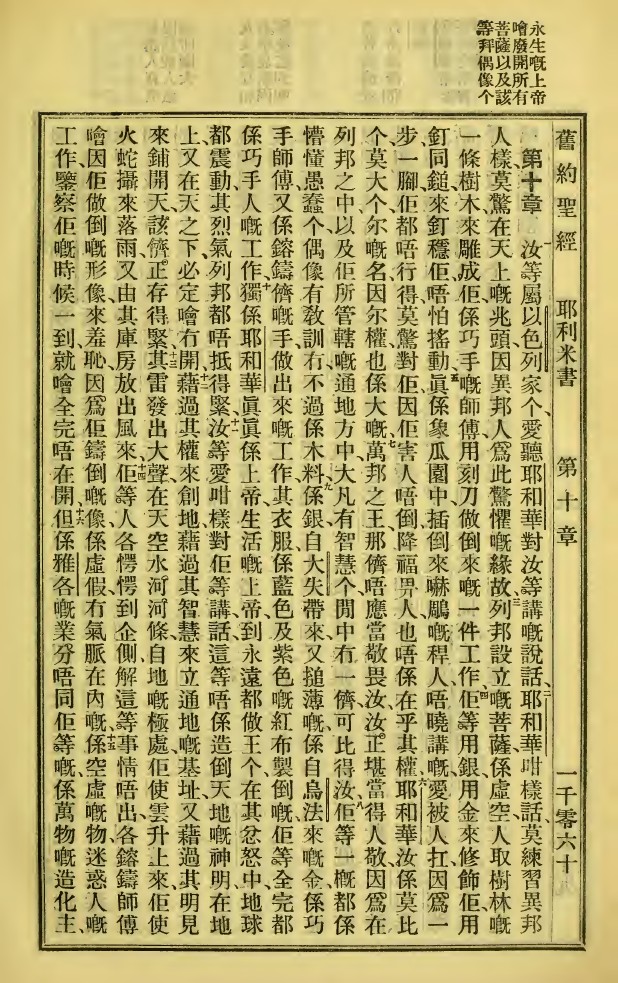 永生嘅上帝
噲廢開所有
菩薩以及該
等拜偶像个
舊約聖經 耶利米書 第十章 一千零六十
第十章 一汝等屬以色列家个、愛聽耶和華對汝等講嘅說話、二耶和華咁樣話、莫練習異邦
人樣、莫驚在天上嘅兆頭、因異邦人爲此驚懼嘅緣故、三列邦設立嘅菩薩係虛空、人取樹林嘅
一條樹木來雕成、佢係巧手嘅師傅用刻刀做倒來嘅一件工作、四佢等用銀用金來修飾佢、用
釘同鎚來釘穩佢、唔怕搖動、五眞係象瓜園中插倒來嚇鵰嘅稈人、唔曉講嘅、愛被人扛、因爲一
步一腳佢都唔行得、莫驚對佢、因佢害人唔倒、降福畀人也唔係在乎其權、六耶和華汝係莫比
个、莫大个、尔嘅名因尔權也係大嘅、七萬邦之王、那儕唔應當敬畏汝、汝正堪當得人敬、因爲在
列邦之中以及佢所管轄嘅通地方中、大凡有智慧个閒中、有一儕可比得汝、八佢等一概都係
懵懂愚蠢个、偶像有敎訓冇、不過係木料、九係銀自大失帶來又搥薄嘅、係自烏法來嘅金、係巧
手師傅又係鎔鑄儕嘅手、做出來嘅工作、其衣服係藍色及紫色嘅紅布製倒嘅、佢等全完都
係巧手人嘅工作、十獨係耶和華眞眞係上帝、生活嘅上帝、到永遠都做王个、在其忿怒中地球
都震動、其烈氣列邦都唔抵得緊、十一汝等愛咁樣對佢等講話、這等唔係造倒天地嘅神明、在地
上又在天之下必定噲冇開、十二藉過其權來創地、藉過其智慧來立通地嘅基址、又藉過其明見
來鋪開天、該儕正存得緊、十三其雷發出大聲、在天空水河河條、自地嘅極處佢使雲升上來、佢使
火蛇攝來落雨、又由其庫房放出風來、十四佢等人各愕愕到企側解這等事情唔出、各鎔鑄師傅
噲因佢做倒嘅形像來羞恥、因爲佢鑄倒嘅像係虛假、冇氣脈在內嘅、十五係空虛嘅物、迷惑人嘅
工作、鑒察佢嘅時候一到、就噲全完唔在開、十六但係雅各嘅業分唔同佢等嘅、係萬物嘅造化主、